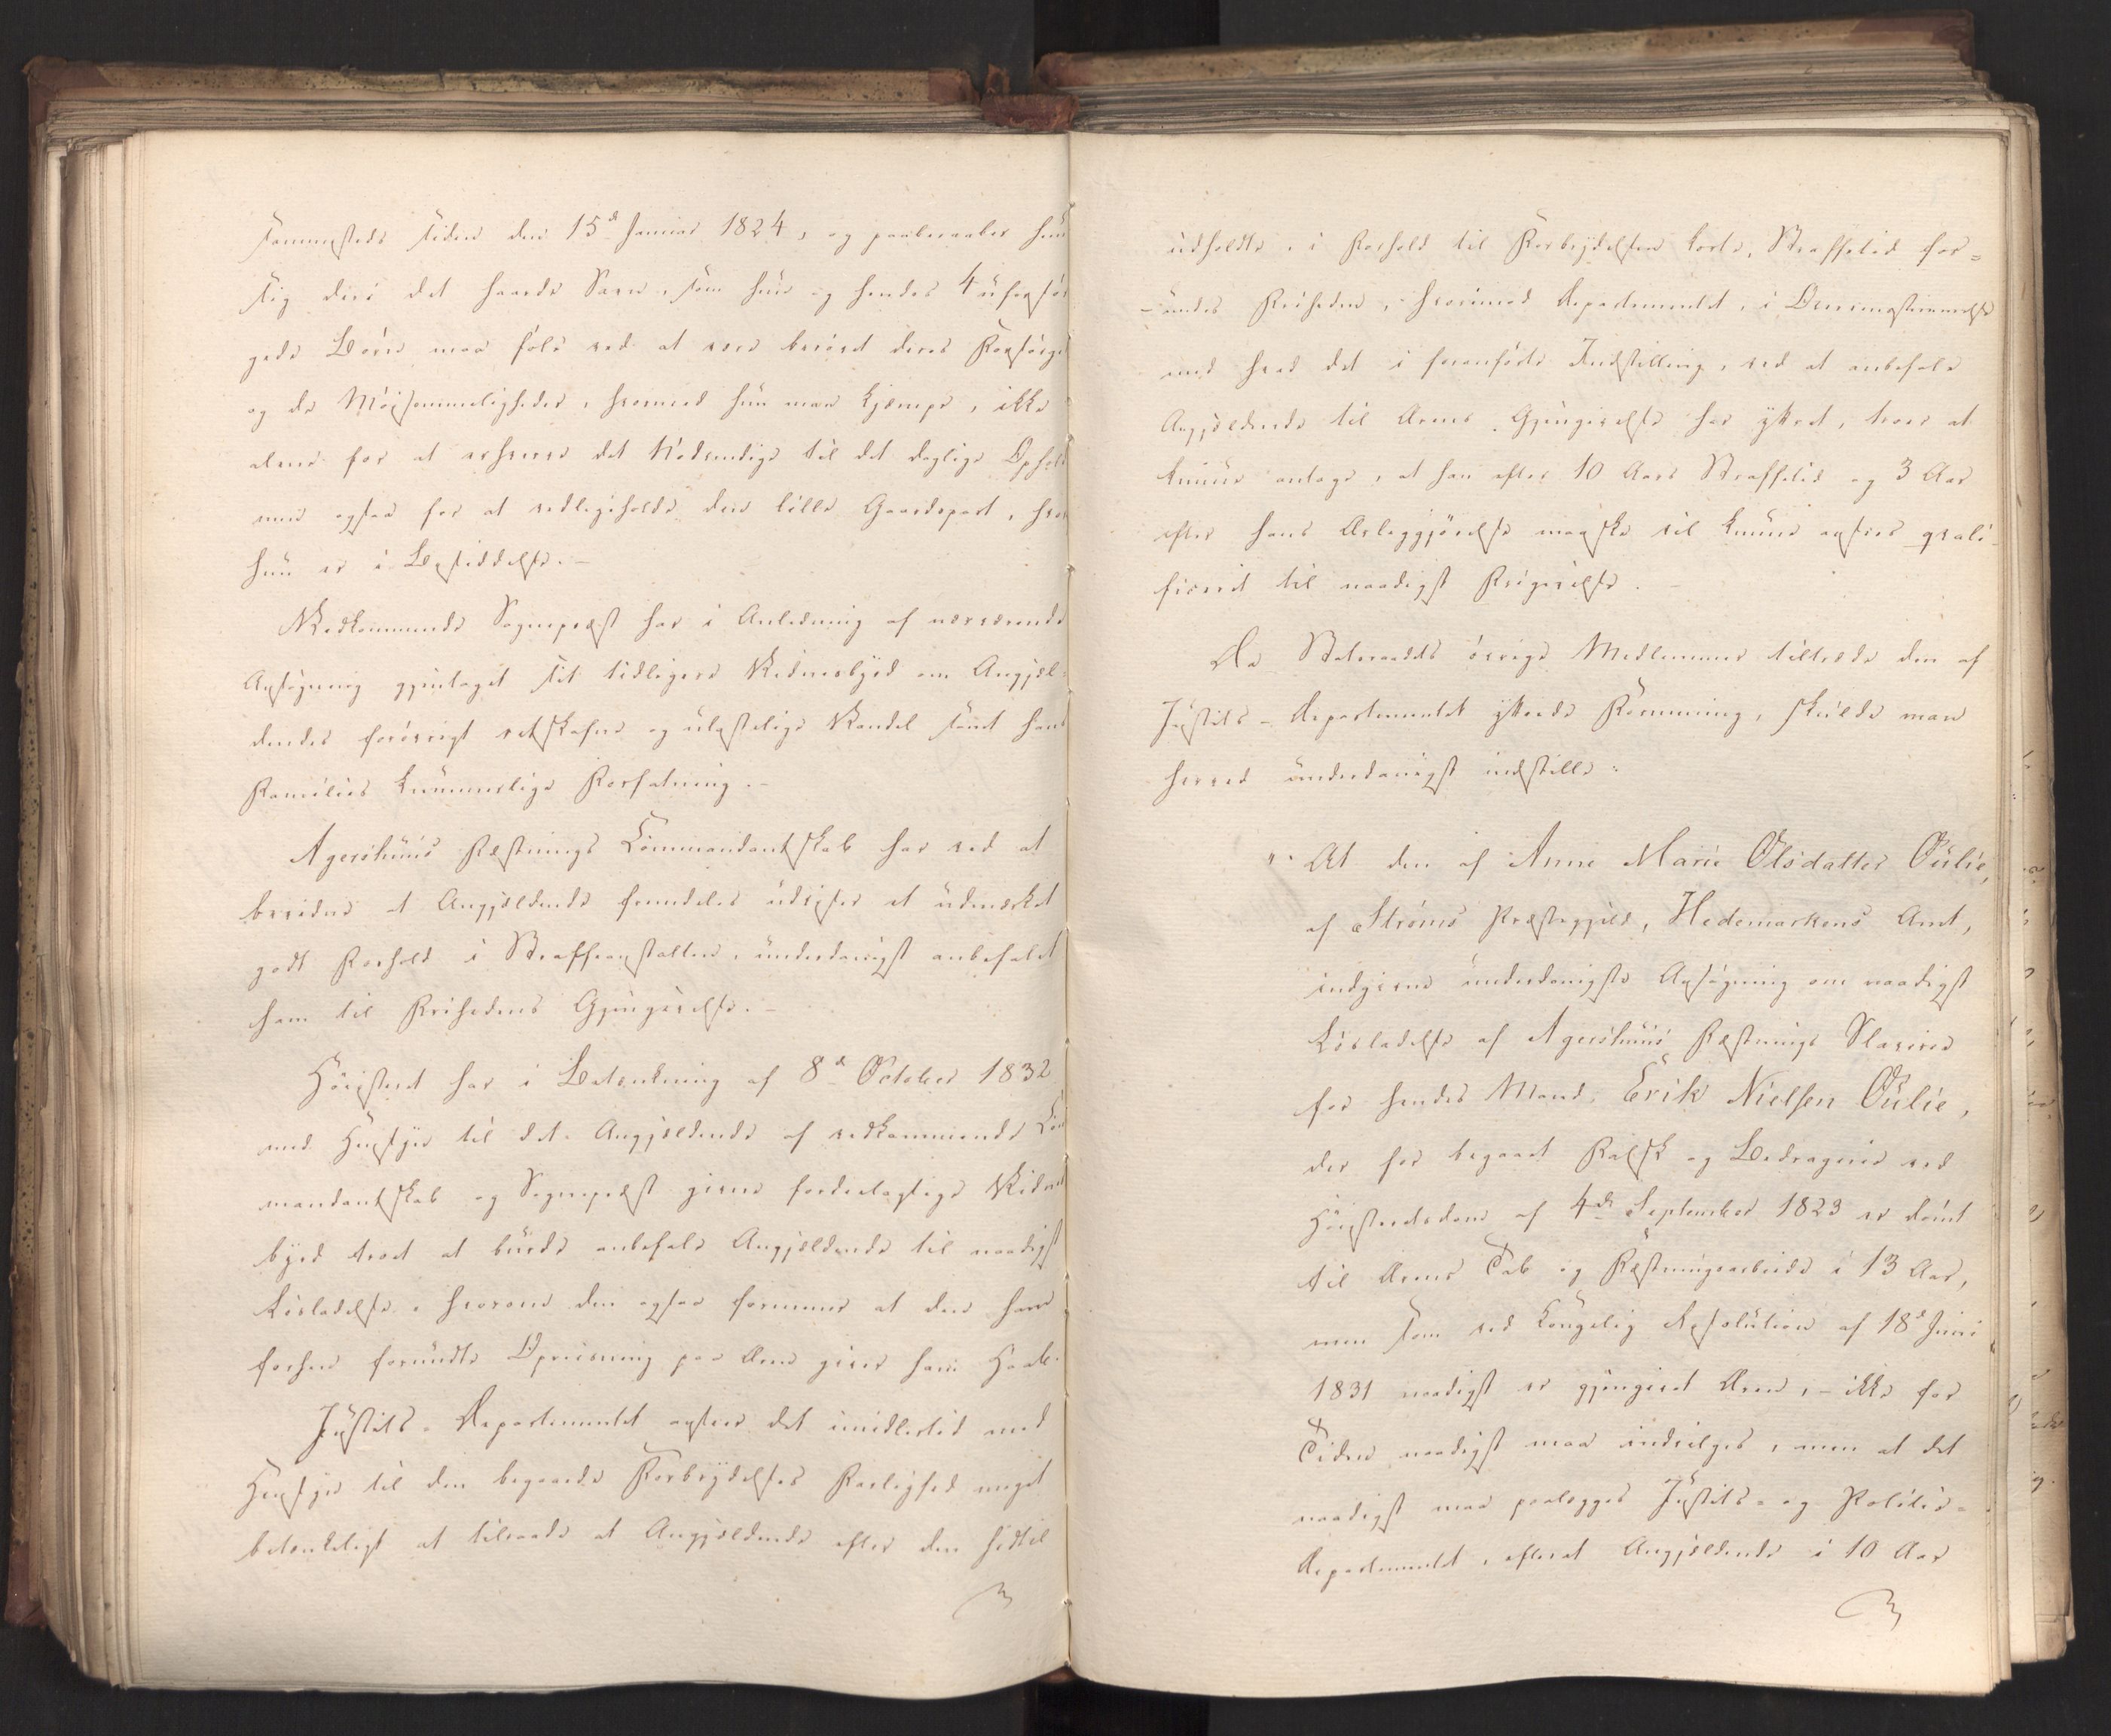 sammesteds siden den 15de Januar 1824, og paaberaaber hun
sig deri det haarde Savn, som hun og hendes 4 uforsør
gede Børn maa føle ved at være berøvet deres Forsørger
og de Møisommeligheder, hvormed hun maa kjæmpe, ikke
alene for at erhverve det Nødvendige til det daglige Ophold
men ogsaa for at vedligeholde den lille Gaardepart, hvor
hun er i Besiddelse. –
Vedkommende Sognepræst har i Anledning af nærværende
Ansøgning gjentaget sit tidligere Vidnesbyrd om Angjæl-
dendes forøvrigt retskafne og ulastelige Vandel samt hans
Families kummerlige Forfatning. –
Agershuus Fæstnings Commandantskab har ved at
bevidne at Angjældende fremdeles udviser et udmærket
godt Forhold i Straffeanstalten, underdanigst anbefalet
ham til Frihedens Gjengivelse. –
Høiesteret har i Betænkning af 8de October 1832
med Hensyn til det Angjældende af vedkommende Com
mandantskab og Sognepræst givne fordeelagtige Vidnes
byrd troet at burde anbefale Angjældende til naadigst
Løsladelse, hvorom den ogsaa formener at den ham
forhen forundte Opreisning paa Æren giver ham Haab.
Justits-Departementet anseer det imidlertid med
Hensyn til den begaaede Forbrydelses Farlighed meget
betænkeligt at tilraade at Angjældende efter den hidtil
udholdte, i Forhold til Forbrydelsen korte, Straffetid for-
-undes Friheden, hvorimod Departementet, i Overeensstemmelse
med hvad det i foranførte Indstilling, ved at anbefale
Angjældende til Ærens Gjengivelse har yttret, troer at
kunne antage, at han efter 10 Aars Straffetid og 3 Aar
efter hans Æreliggjørelse maaske vil kunne ansees qvali-
ficeret til naadigst Frigivelse. –
Da Statsraadets øvrige Medlemmer tiltræde den af
Justits-Departementet yttrede Formening, skulde man
herved underdanigst indstille:
"At den af Anne Marie Olsdatter Oulie,
af Strøms Præstegjeld, Hedemarkens Amt,
indgivne underdanigste Ansøgning om naadigst
Løsladelse af Agershuus Fæstnings Slaverie
for hendes Mand, Erik Nielsen Oulie,
der for begaaet Falsk og Bedragerie ved
Høiesteretsdom af 4de September 1823 er dømt
til Ærens Tab og Fæstningsarbeide i 13 Aar,
men som ved Kongelig Resolution af 18de Juni
1831 naadigst er gjengivet Æren, – ikke for
Tiden naadigst maa indvilges, men at det
naadigst maa paalægges Justits- og Politie-
Departementet, efterat Angjældende i 10 Aar